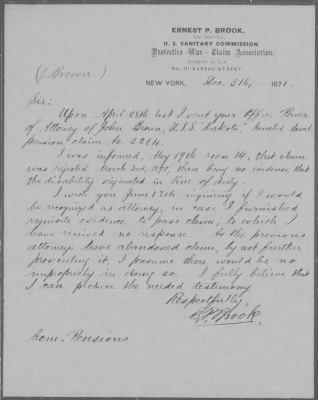 ERNEST P. BROOK,
U. S. SANITARY COMMISSION
Protective War-Claim Association.
No. 111 NASSAU STREET.
(J. Brown)
NEW YORK, Dec. 5th, 1871.
Sir:
Upon April 28th last I sent your Office Power
of Attorney of John Brown, U.S.S. "Dakota," Invalid Naval
pension claim No 2264.
I was informed, May 19th room 14, that claim
was rejected March 3rd, 1870, there being no evidence that
the disability originated in line of duty.
I wrote you June 17th inquiring if I would
be recognized as attorney, in case I furnished
requisite evidence to pass claim, to which I
have received no response. As the previous
attorneys have abandoned claim, by not further
prosecuting it, I presume there would be no
impropriety in doing so. I fully believe that
I can produce the needed testimony
Respectfully,
E.P. Brook.
Com. Pensions